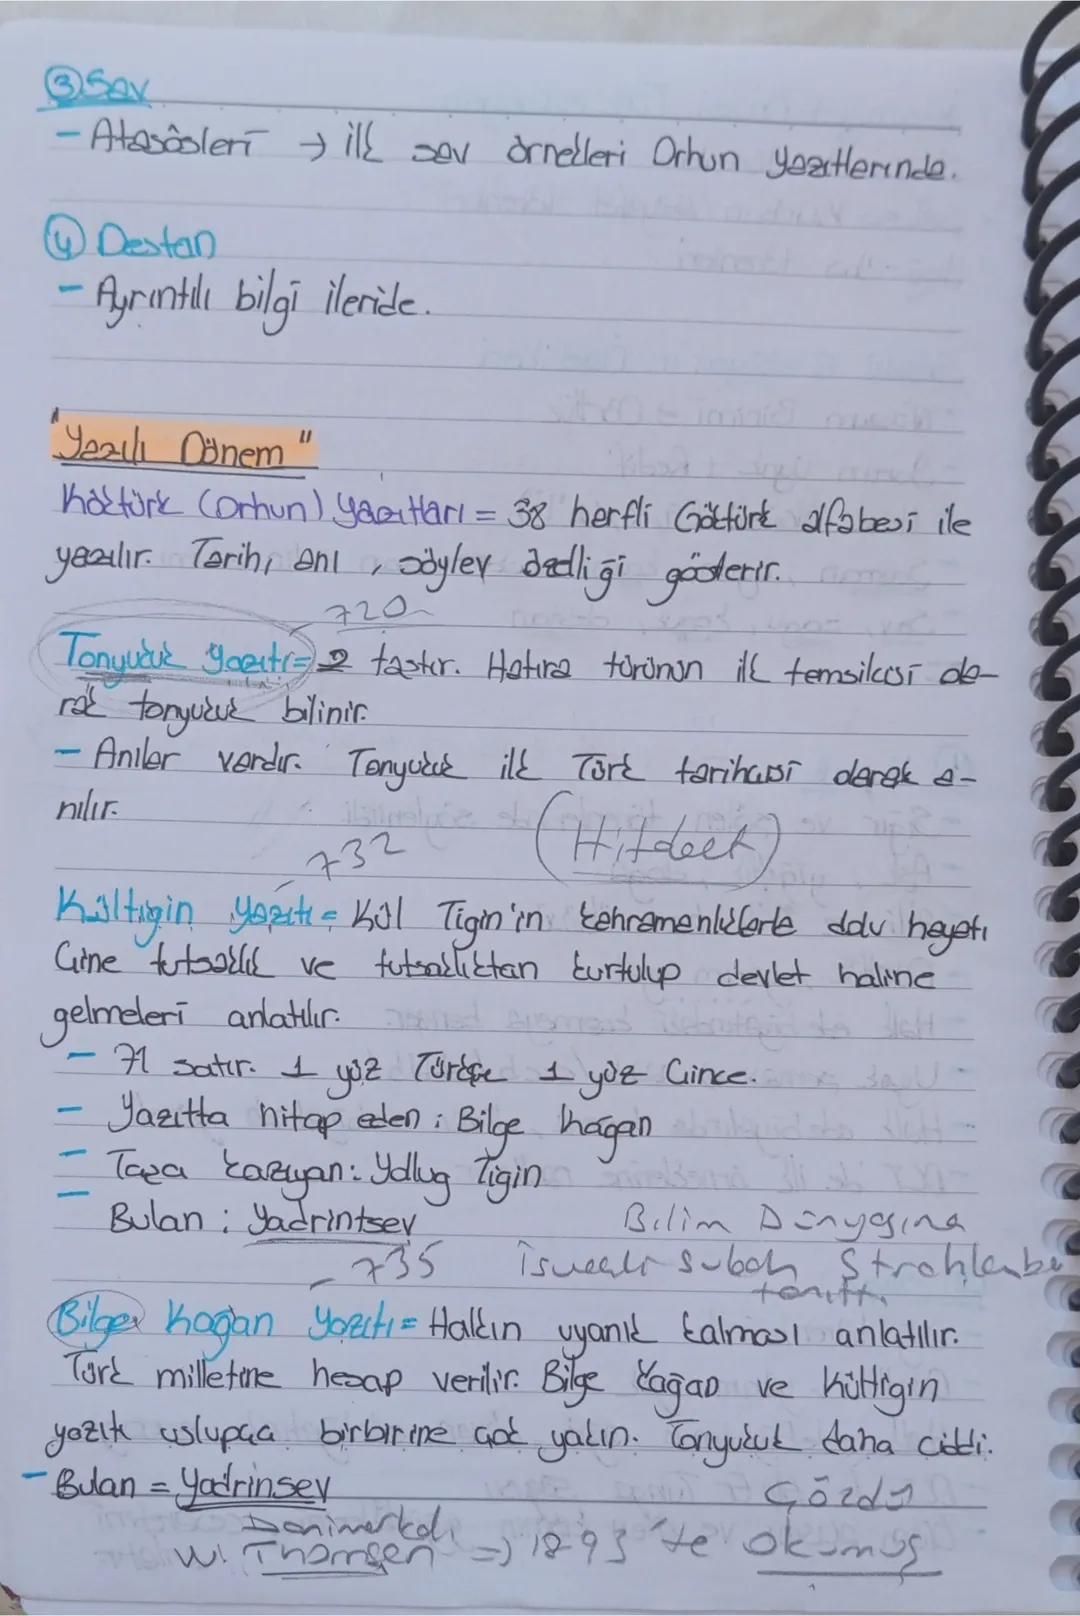 ③ Sav
- Atasözleri → ilk sav örnekleri Orhun yazıtlarında.
④ Destan
- Ayrıntılı bilgi ileride.
"Yazılı Dönem"
Köktürk (Orhun) Yazıtları = 38 harfli Göktürk alfabesi ile
yazılır. Tarih, anı, söylev özelliği gösterir.
720
Tonyukuk yazıtı = 2 taştır. Hatıra türünün ilk temsilcisi ola-
rak tonyukuk bilinir.
- Anılar vardır. Tonyukuk ilk Türk tarihçisi olarak a-
nılır.
732
Kültigin yazıtı = Kül Tigin'in kahramanlıklarla dolu hayatı
Çine tutsaklık ve tutsaklıktan kurtulup devlet haline
gelmeleri anlatılır.
- 71 satır. 1 yüz Türkçe 1 yüz Çince.
- Yazıtta hitap eden : Bilge kağan
- Taşa kazıyan : Yollug Tigin
- Bulan : Yadrintsev
Bilim Dünyasına
735
İsveçli subay Strahlenbe
tanıttı
Bilge Kağan Yazıtı = Halkın uyanık kalması anlatılır.
Türk milletine hesap verilir. Bilge Kağan ve Kültigin
yazıtı uslupça birbirine çok yakın. Tonyukuk daha ciddi.
- Bulan = Yadrinsev
Çözdü
Danimarkalı
W. Thomsen => 1893'te okumuş